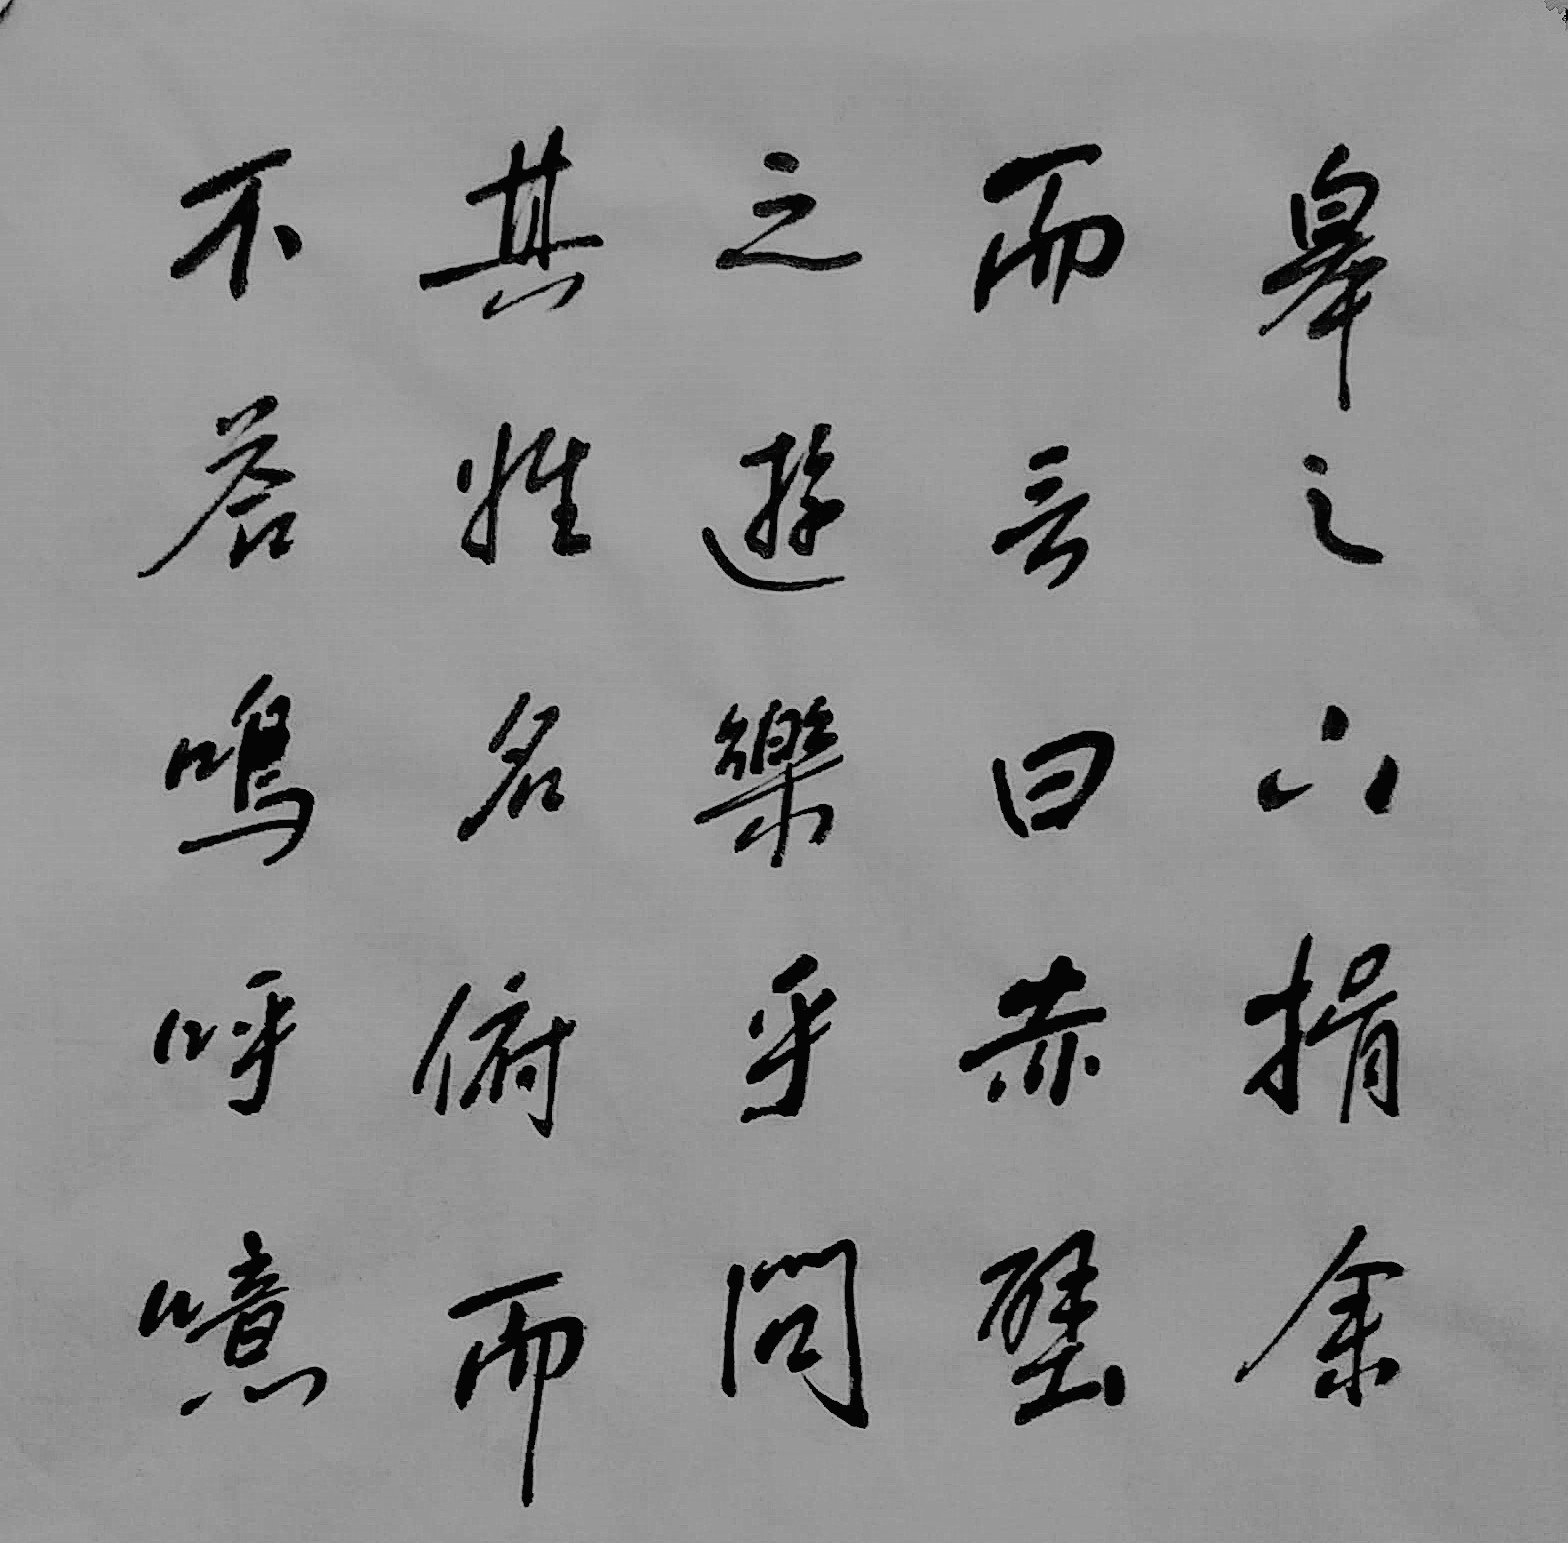 皋之下揖余
而言曰赤壁
之遊樂乎問
其姓名俯而
不答嗚呼噫